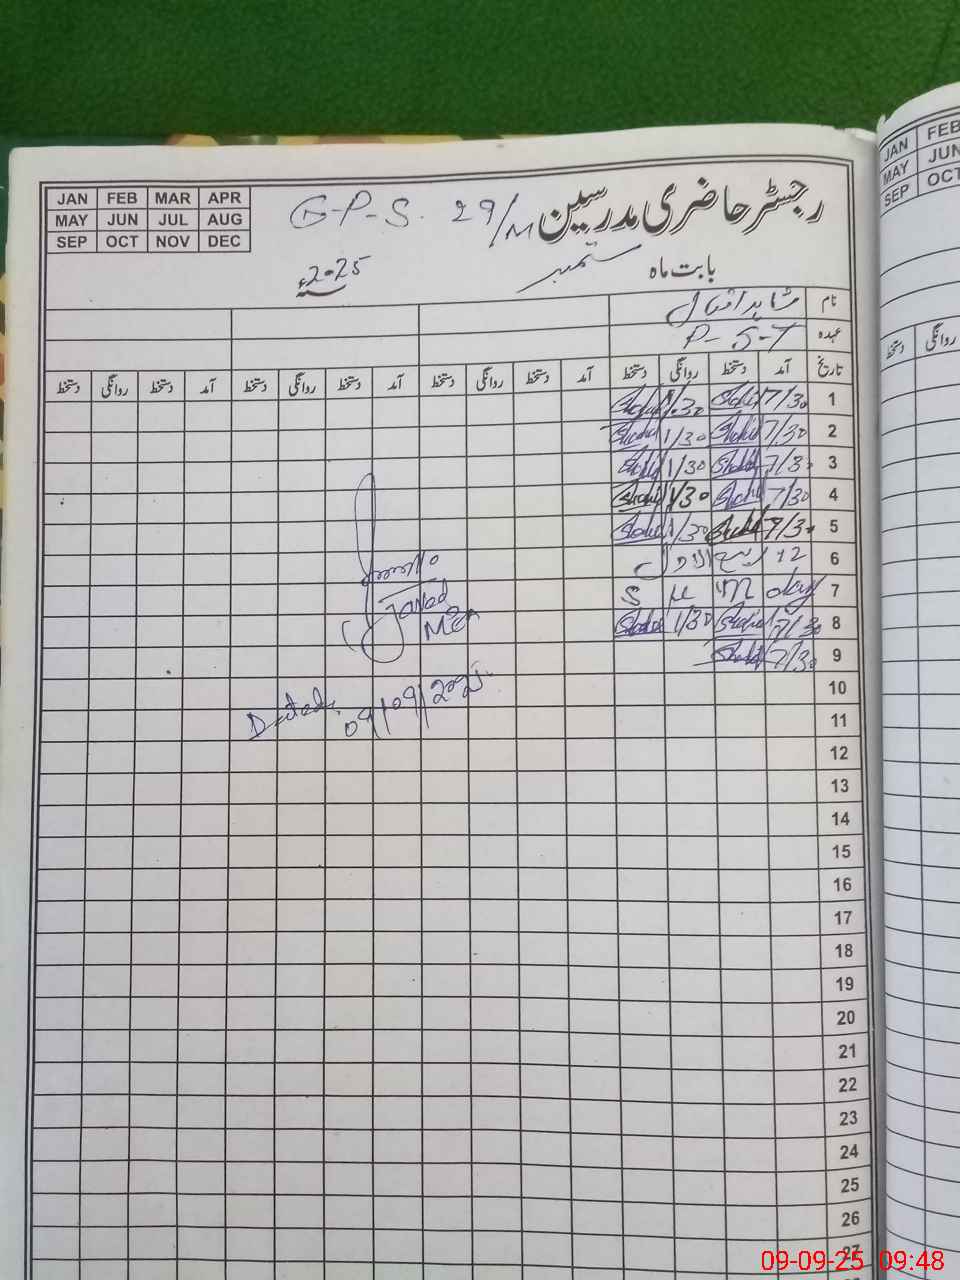 JAN FEB MAR APR
MAY JUN JUL AUG
SEP OCT NOV DEC
G-P-S. 29/M
رجسٹر حاضری مدرسین
بابت ماہ ستمبر
2025ء
نام شاہد اقبال
عہدہ P-S-T
تاریخ آمد دستخط روانگی دستخط آمد دستخط روانگی دستخط آمد دستخط روانگی دستخط آمد دستخط روانگی دستخط
1 7/30 Shahid 1.30 Shahid
2 7/30 Shahid 1/30 Shahid
3 7/30 Shahid 1/30 Shahid
4 7/30 Shahid 1/30 Shahid
5 7/30 Shahid 1/30 Shahid
6 12 ربیع الاول
7 S u n day
8 7/30 Shahid 1/30 Shahid
9 7/30 Shahid
Javed
MEA
Dated. 09/09/2025.
10
11
12
13
14
15
16
17
18
19
20
21
22
23
24
25
26
27
JAN FEB
MAY JUN
SEP OCT
روانگی دستخط
09-09-25 09:48